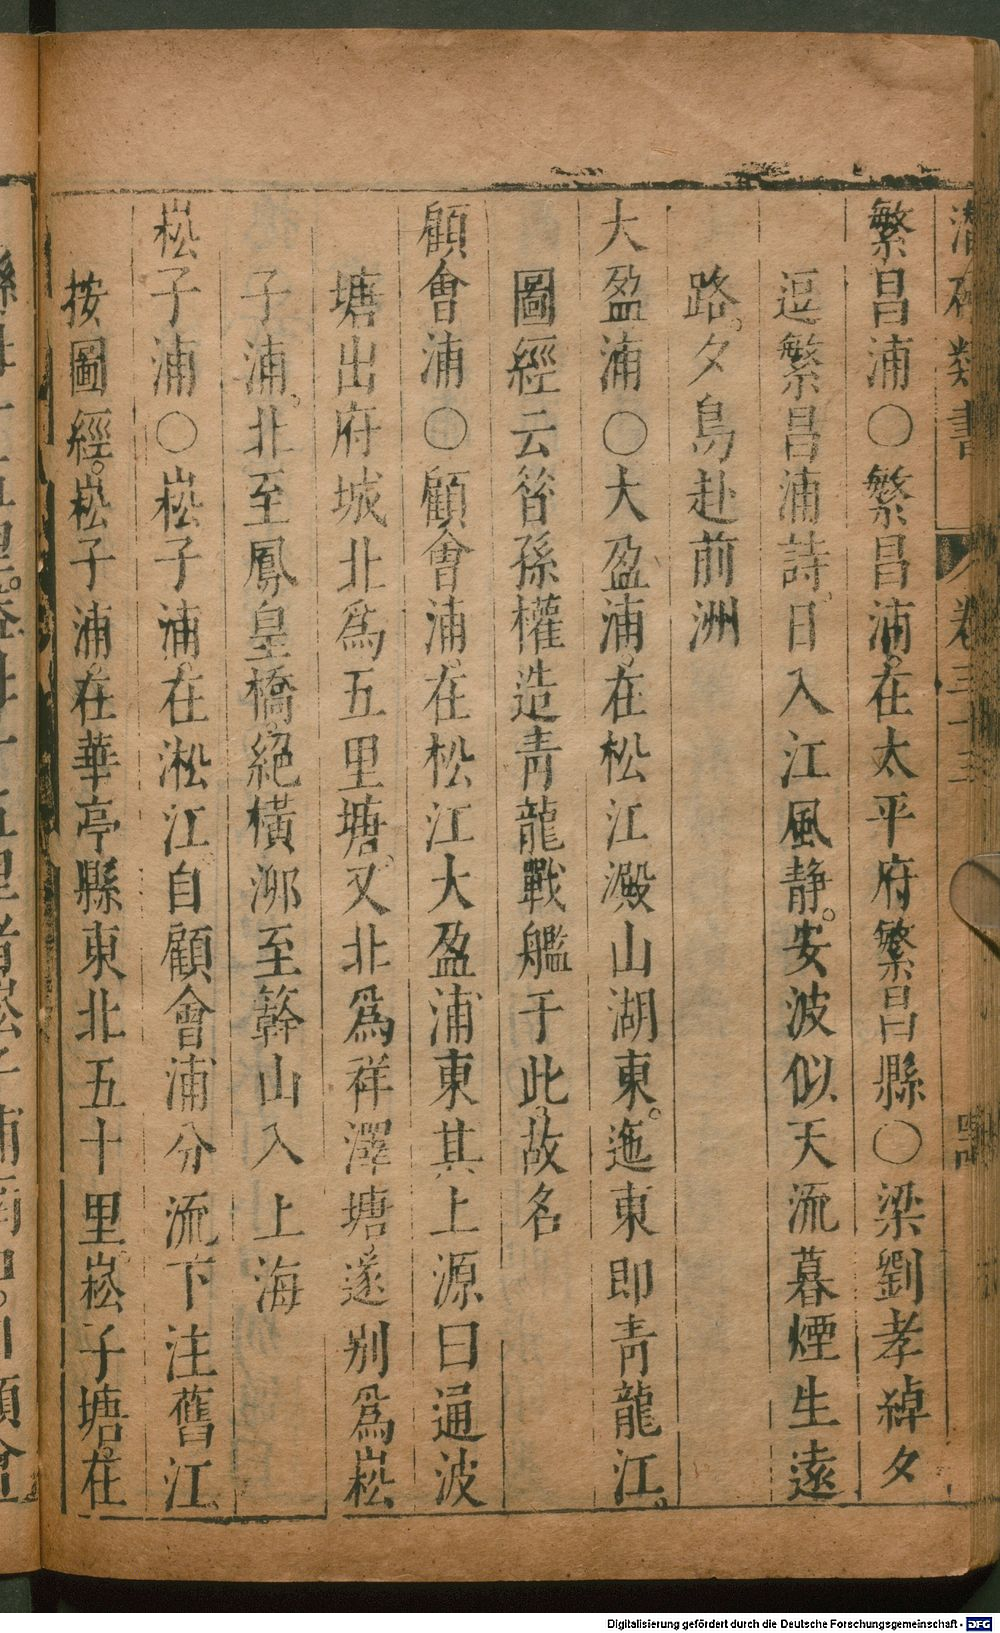 潛確類書 卷三十三
繁昌浦○繁昌浦在太平府繁昌縣○梁劉孝綽夕
逗繁昌浦詩。日入江風靜。安波似天流暮煙生遠
路。夕鳥赴前洲
大盈浦○大盈浦在松江澱山湖東。迤東即青龍江。
圖經云昔孫權造青龍戰艦于此。故名
顧會浦○顧會浦。在松江大盈浦東其上源曰通波
塘出府城北為五里塘。又北為祥澤塘。遂別為崧
子浦。北至鳳皇橋。絕橫泖至簳山入上海
崧子浦○崧子浦。在淞江。自顧會浦分流下注舊江。
按圖經。崧子浦。在華亭縣東北五十里。崧子塘。在
Digitalisierung gefördert durch die Deutsche Forschungsgemeinschaft - DFG